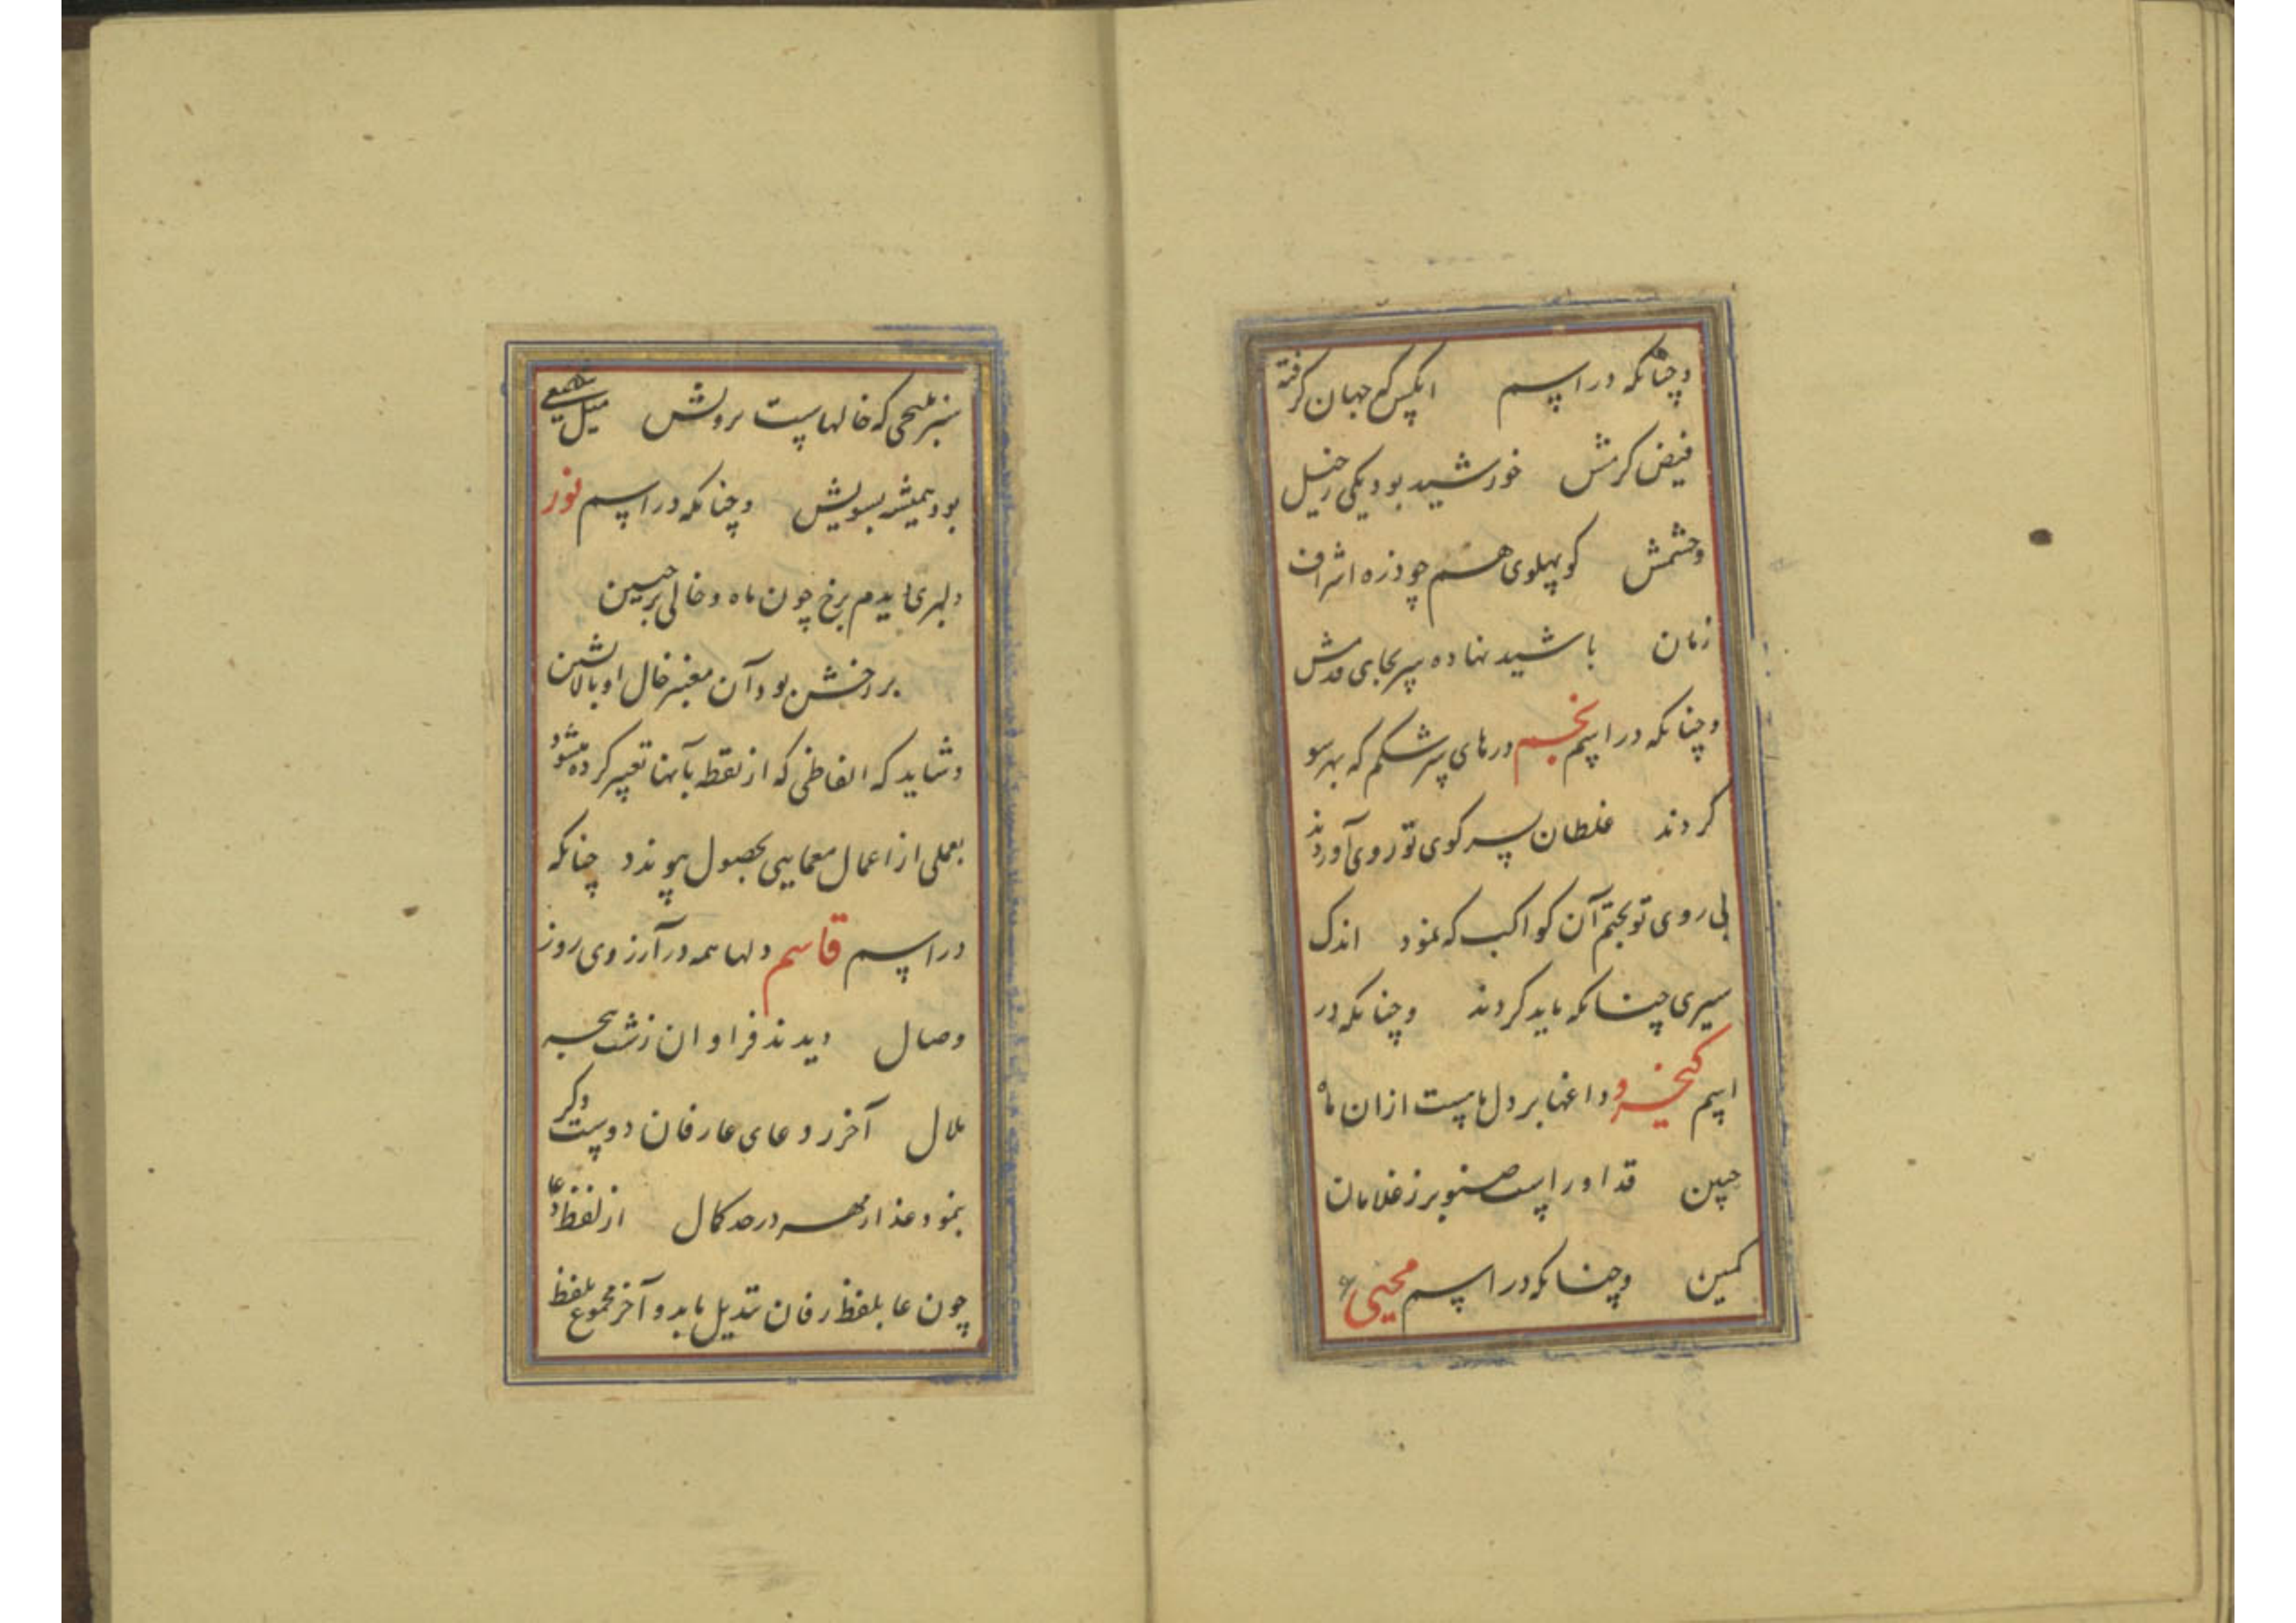 وچنانکه در اسم انکس که جهان گرفته
فیض کرمش خورشید بود یکی ز خیل
وحشمش کو پهلوی هم چو ذره اشراف
زمان باشید نهاده سر بجای قدمش
وچنانکه در اسم نجم درهای سرشکم که بهر سو
کردند غلطان بسر کوی تو روی آوردند
بی روی تو بختم آن کواکب که نمود اندک
سیری چنانکه باید کردند وچنانکه در
اسم کیخسرو داغها بر دل ماست از ان ماه
جبین قد او راست صنوبر ز غلامان
کمین وچنانکه در اسم محیی
سبز ملیحی که خالهاست برویش میل
بود همیشه بسویش وچنانکه در اسم نور
دلبری دیدم برخ چون ماه و خالی بر جبین
بر رخش بود آن معنبر خال او بالانشین
وشاید که الفاظی که از نقطه بآنها تعبیر کرده میشود
بعملی از اعمال معمایی بحصول پیوندد چنانکه
در اسم قاسم دلها همه در آرزوی روز
وصال دیدند فراوان ز شب هجر
ملال آخر ز دعای عارفان دوست دگر
بنمود عذار مهر در حد کمال از لفظ دعا
چون عا بلفظ رفان تبدیل یابد و آخر مجموع بلفظ